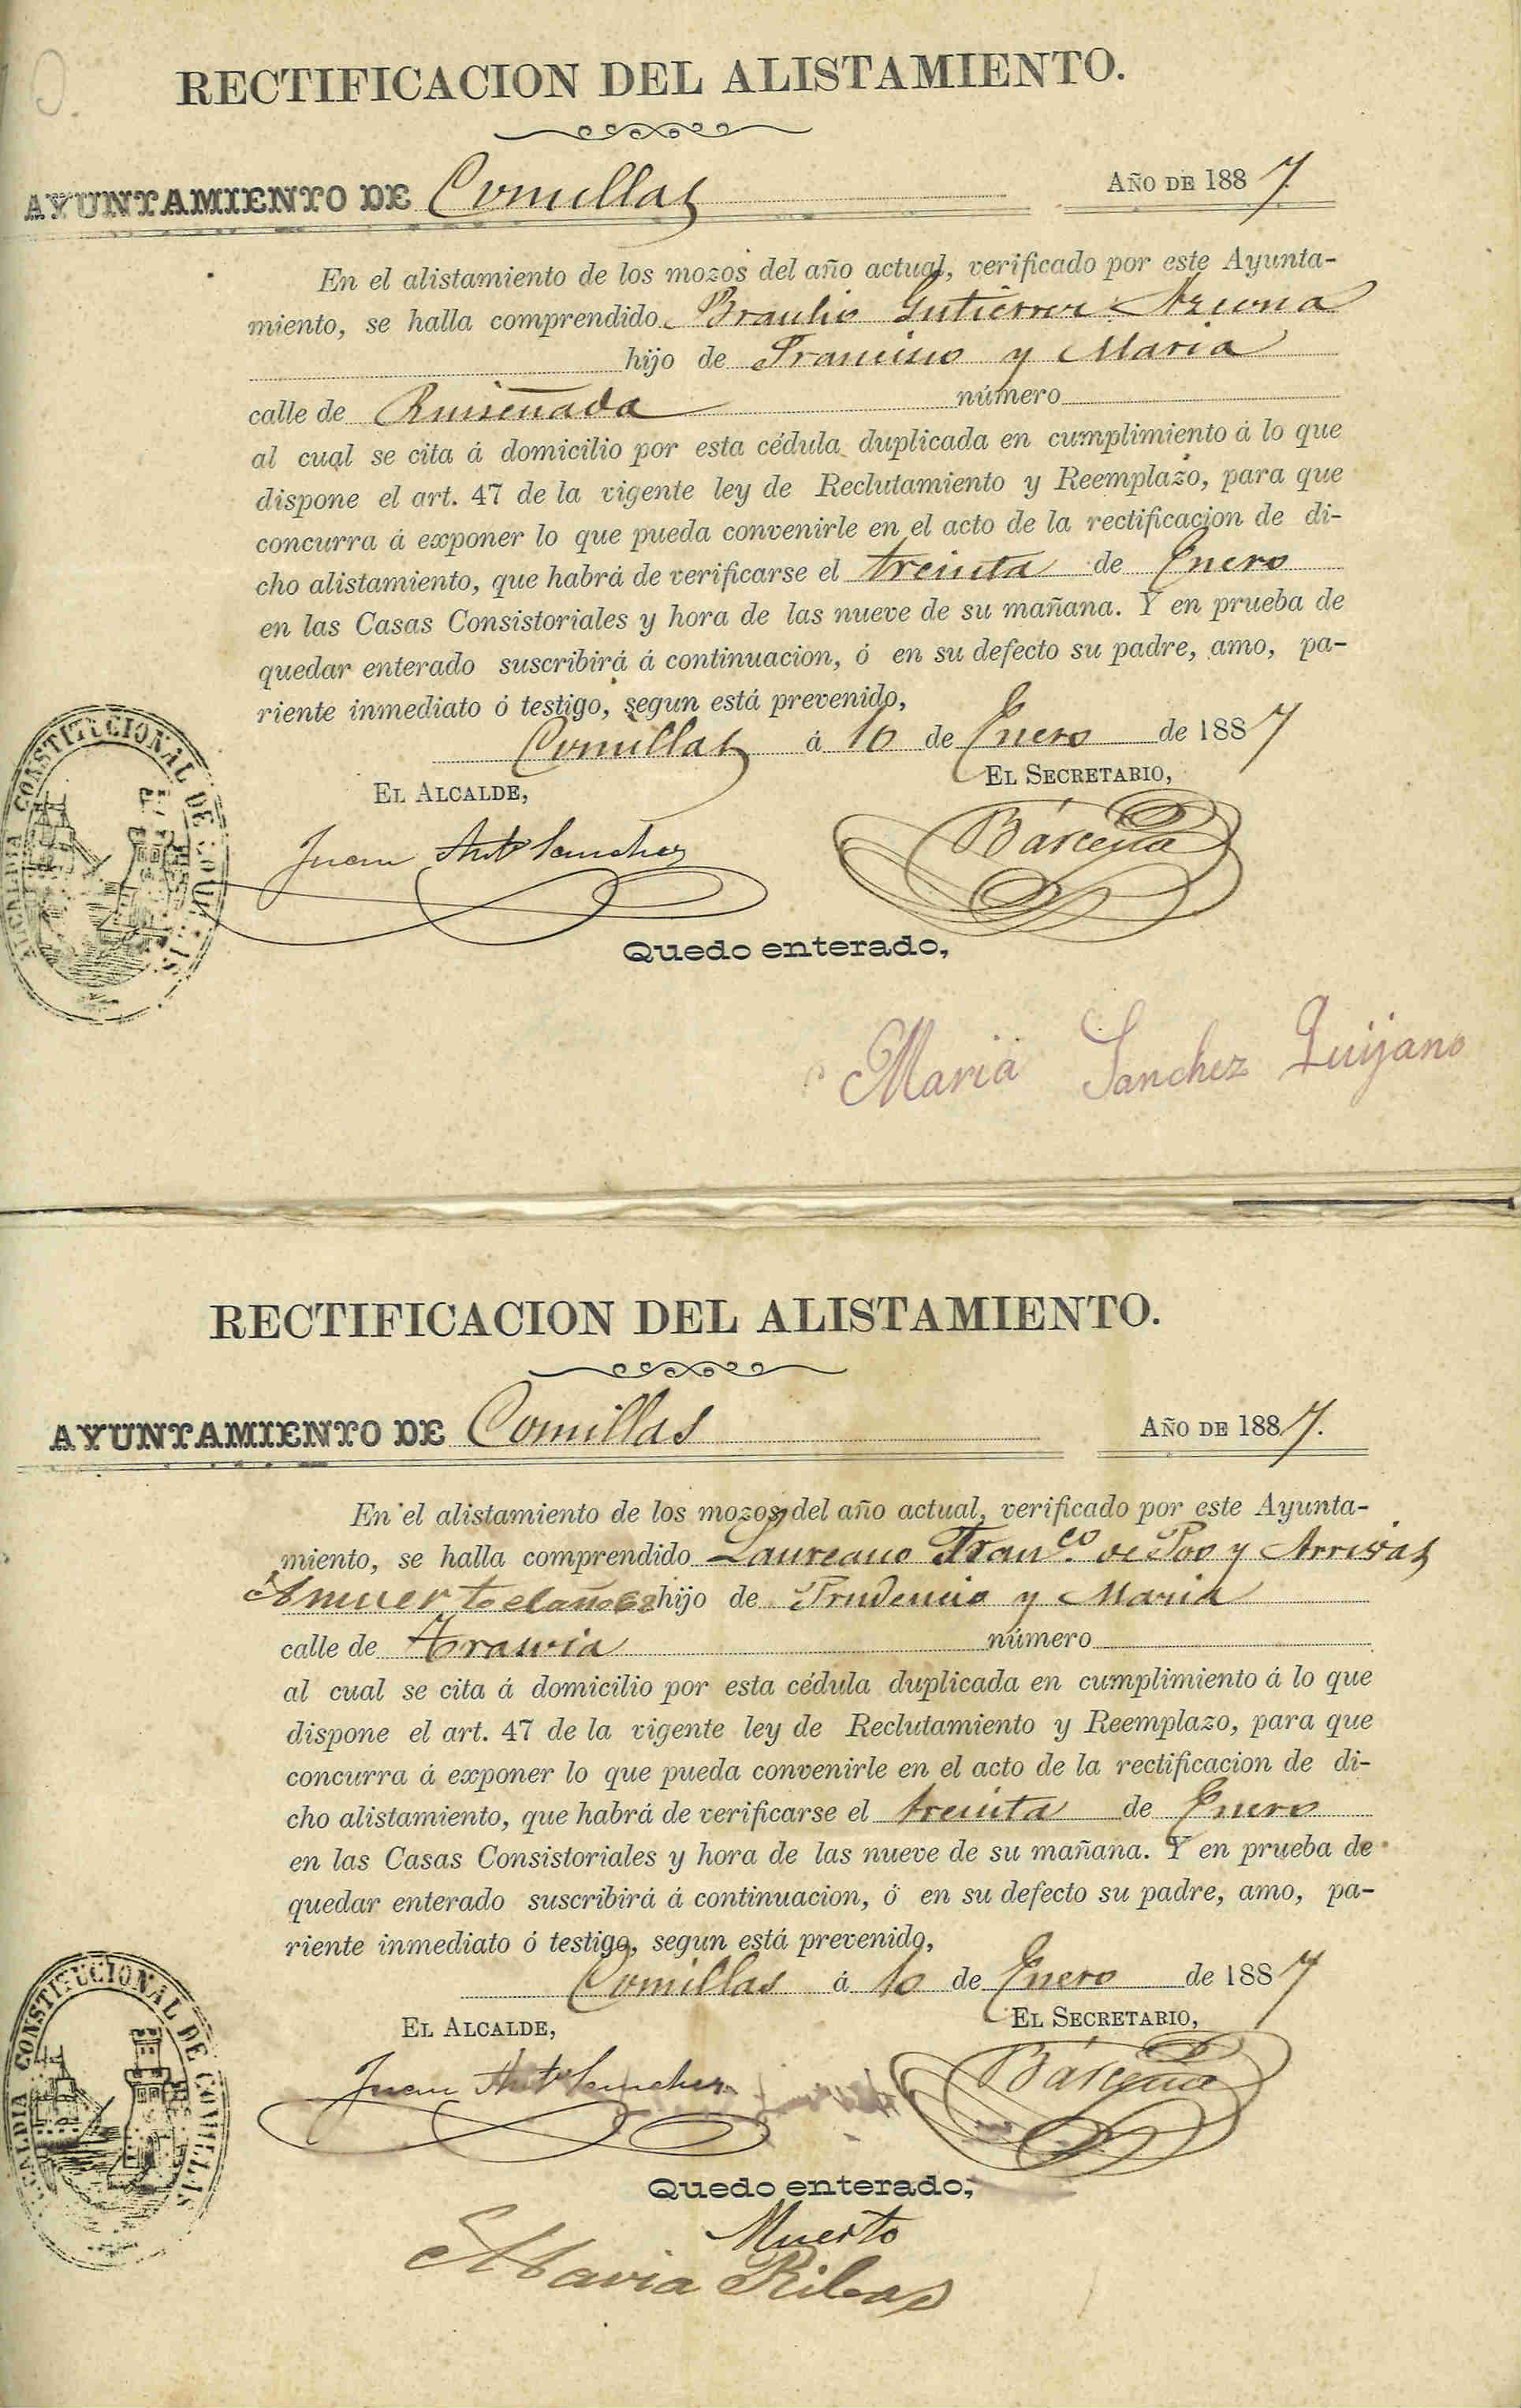 RECTIFICACION DEL ALISTAMIENTO.
AYUNTAMIENTO DE Comillas AÑO DE 1887.
En el alistamiento de los mozos del año actual, verificado por este Ayunta-
miento, se halla comprendido Braulio Gutierrez Azcona
hijo de Francisco y Maria
calle de Ruiseñada número
al cual se cita á domicilio por esta cédula duplicada en cumplimiento á lo que
dispone el art. 47 de la vigente ley de Reclutamiento y Reemplazo, para que
concurra á exponer lo que pueda convenirle en el acto de la rectificacion de di-
cho alistamiento, que habrá de verificarse el treinta de Enero
en las Casas Consistoriales y hora de las nueve de su mañana. Y en prueba de
quedar enterado suscribirá á continuacion, ó en su defecto su padre, amo, pa-
riente inmediato ó testigo, segun está prevenido,
Comillas á 10 de Enero de 1887
EL ALCALDE, EL SECRETARIO,
ALCALDIA CONSTITUCIONAL DE COMILLAS
Juan Ant Sanchez Bárcena
Quedo enterado,
Maria Sanchez Quijano
RECTIFICACION DEL ALISTAMIENTO.
AYUNTAMIENTO DE Comillas AÑO DE 1887.
En el alistamiento de los mozos del año actual, verificado por este Ayunta-
miento, se halla comprendido Laureano Franco. de Poo y Arrivas
A muerto el año 68 hijo de Prudencio y Maria
calle de número
al cual se cita á domicilio por esta cédula duplicada en cumplimiento á lo que
dispone el art. 47 de la vigente ley de Reclutamiento y Reemplazo, para que
concurra á exponer lo que pueda convenirle en el acto de la rectificacion de di-
cho alistamiento, que habrá de verificarse el treinta de Enero
en las Casas Consistoriales y hora de las nueve de su mañana. Y en prueba de
quedar enterado suscribirá á continuacion, ó en su defecto su padre, amo, pa-
riente inmediato ó testigo, segun está prevenido,
Comillas á 10 de Enero de 1887
EL ALCALDE, EL SECRETARIO,
ALCALDIA CONSTITUCIONAL DE COMILLAS
Juan Ant Sanchez Bárcena
Quedo enterado,
Muerto
Maria Ribas